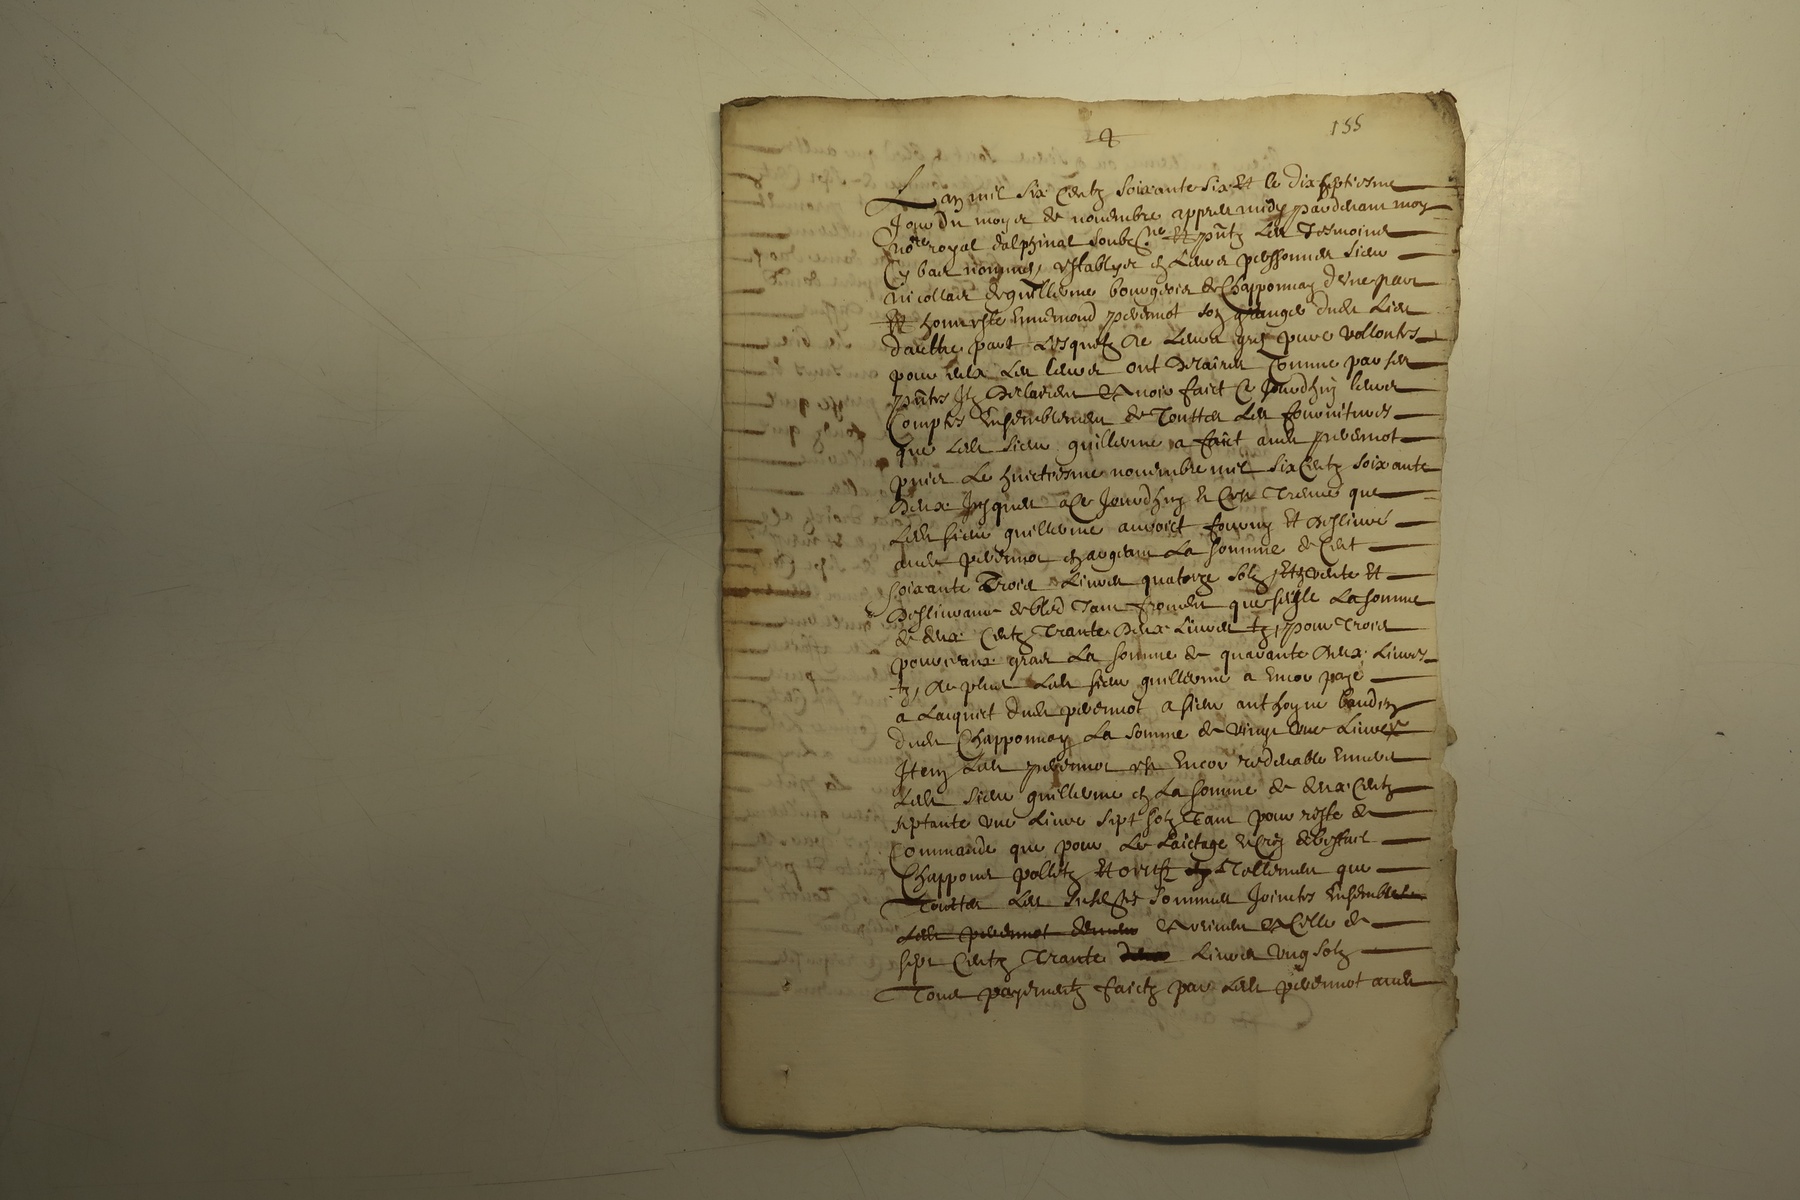 155
Lan mil six centz soixante six et le dix septiesme
Jour du moys de novembre appres midy pardevant moy
no.re royal dalphinal soub.ne et pntz les tesmoins
Cy bas nommes, establys en leurs perssonnes sieur
nicollas deguillerme bourgeois de Chapponnay d'une part
Et honneste pevernot son granger dudt lieu
daultre part Lesquelz de leurs grez pure vollontes
pour eulx les leurs ont desclaires comme par ses
pntes Ilz desclairent avoir faict ce Jourdhuy leurs
Comptes Ensemblement de Touttes les fournitures
que ledt sieur guillerme a faict audt pevernot
puis le huictiesme novembre mil six centz soixante
deux Jusques a ce Jourdhuy et cest treuve que
ledt sieur guillerme auroict fourny et deslivré
audt pevernot en argent La somme de Cent
soixante Trois Livres quatorze solz
deslivrance de bled Tant froment que seigle La somme
de deux Centz Trante deux Livres tz, pour Trois
pourceaux gras La somme de quarante deux Livres
tz, de plus Ledt sieur guillerme a Encor payé
a Lacquict dudt pevernot a sieur anthoyne baudin
dudt Chapponnay La somme de vingt une Livres
Item Ledt pevernot est Encor redevable Envers
Ledt sieur guillerme en La somme de deux Centz
septante une Livre sept solz Tant pour reste de
Commande que pour Le Laictage
Chappons polletz Et oeufz Tellement que
Touttes Les susdes sommes Joinctes Ensembles
Ledt pevernot Reviennent a Celle de
sept Centz Trante Livres ung solz
Tous payementz faictz par Ledt pevernot audt